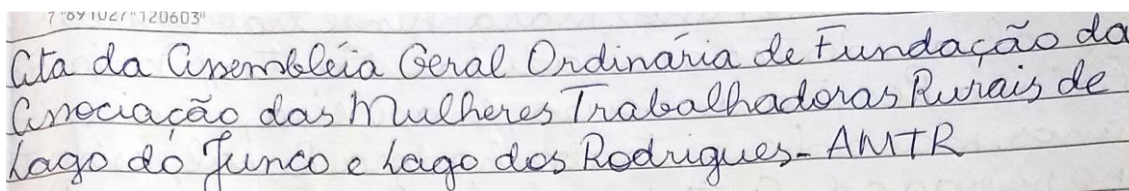 7 891027 120603
Ata da Assembléia Geral Ordinária de Fundação da
Associação das Mulheres Trabalhadoras Rurais de
Lago do Junco e Lago dos Rodrigues - AMTR